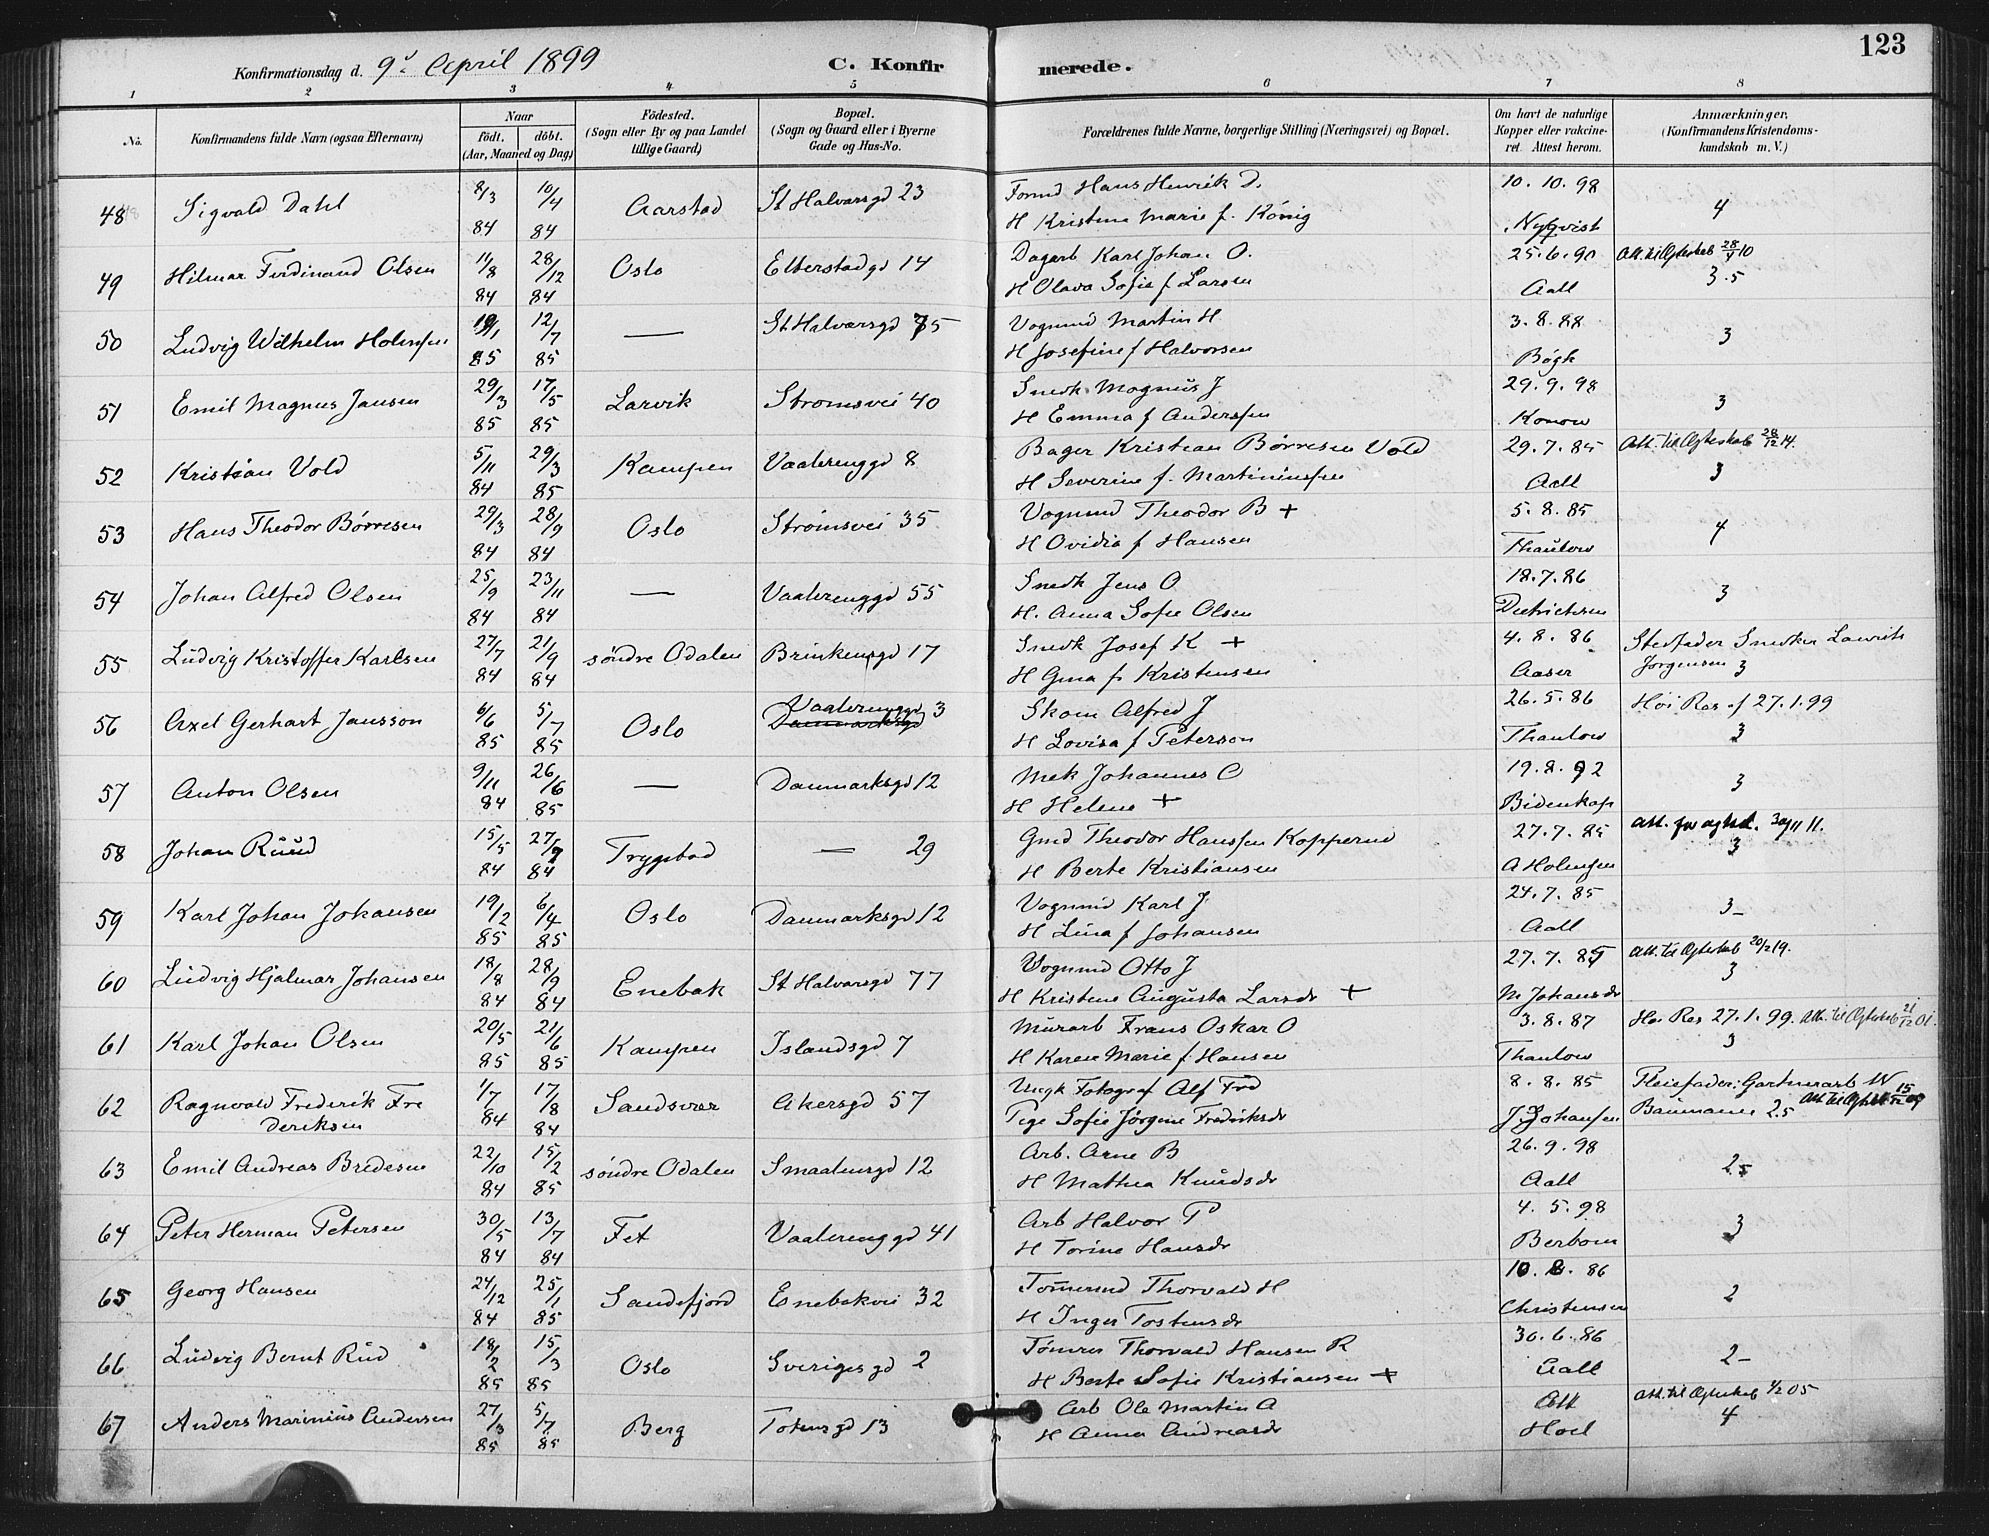 123
Konfirmationsdag d. 9d April 1899 C. Konfirmerede.
1 2 3 4 5 6 7 8
No. Konfirmandens fulde Navn (ogsaa Efternavn) Naar födt. döbt. (Aar, Maaned og Dag) Födested. (Sogn eller By og paa Landet tillige Gaard) Bopæl. (Sogn og Gaard eller i Byerne Gade og Hus-No. Forældrenes fulde Navne, borgerlige Stilling (Næringsvei) og Bopæl. Om havt de naturlige Kopper eller vakcineret. Attest herom. Anmærkninger. (Konfirmandens Kristendomskundskab m. V.)
48 Sigvald Dahl 8/3 84 10/4 84 Aarstad St Halvarsgd 23 Formd Hans Henrik D. 10.10.98
H Kristine Marie f. König Nyqvist 4
49 Hilmar Ferdinand Olsen 11/8 84 28/12 84 Oslo Elterstadgd 14 Dagarb Karl Johan O. 25.6.90 Att. til Ægteskab 28/4 10
H Olava Sofie f Larsen Aall 3.5
50 Ludvig Wilhelm Holmsen 19/1 85 12/7 85 — St Halvarsgd 75 Vognmd Martin H 3.8.88
H Josefine f Halvorsen Bögh 3
51 Emil Magnus Jansen 29/3 85 17/5 85 Larvik Strømsvei 40 Snedk Magnus J 29.9.98
H Emma f Anderssen Konow 3
52 Kristian Vold 5/11 84 29/3 85 Kampen Vaalerenggd 8 Bager Kristian Børresen Vold 29.7.85 Att. til Ægteskab 28/12 14.
H Severine f. Martiniussen Aall 3
53 Hans Theodor Børresen 29/3 84 28/9 84 Oslo Strömsvei 35 Vognmd Theodor B + 5.8.85
H Ovidia f Hansen Thaulow 4
54 Johan Alfred Olsen 25/9 84 23/11 84 — Vaalerenggd 55 Snedk Jens O 18.7.86
H. Anna Sofie Olsen Dietrichsen 3
55 Ludvig Kristoffer Karlsen 27/7 84 21/9 84 söndre Odalen Brinkensgd 17 Snedk Josef K + 4.8.86 Stedfader Snedker Lawrits
H Gina f. Kristensen Aaser Jørgensen 3
56 Axel Gerhart Jansson 6/6 85 5/7 85 Oslo Vaalerenggd 3 Danmarksgd Skom Alfred J 26.5.86 Høi Res af 27.1.99
H Lovisa f Peterson Thaulow 3
57 Anton Olsen 9/11 84 26/6 85 — Danmarksgd 12 Mek Johannes O 19.8.92
H Helene + Bidenkap 3
58 Johan Ruud 15/5 84 27/9 84 Trygstad — 29 Gmd Theodor Hanssen Kopperud 27.7.85
H Berte Kristiansen A Holmsen 3
59 Karl Johan Johansen 19/2 85 6/4 85 Oslo Danmarksgd 12 Vognmd Karl J 24.7.85
H Lina f Johansen Aall 3-
60 Ludvig Hjalmar Johansen 18/8 84 28/9 84 Enebak St Halvarsgd 77 Vognmd Otto J 27.7.85 Att. til Ægteskab 20/2 19.
H Kristine Augusta Larsdr + M Johansdr 3
61 Karl Johan Olsen 20/5 85 21/6 85 Kampen Islandsgd 7 Murarb Frans Oskar O 3.8.87 Høi Res 27.1.99. Att. til Ægteskab 21/12 01.
H Karen Marie f. Hansen Thaulow 3
62 Ragnvald Frederik Fre deriksen 1/7 84 17/8 84 Sandsvær Akersgd 57 Ungk Fotograf Alf Frd 8.8.85 Pleiefader: Gartnerarb W
Pige Sofie Jørgine Fredriksdr J. Johansen Baumann 2.5 Att. til Ægtesk 15/12 09
63 Emil Andreas Bredesen 22/10 84 15/2 85 söndre Odalen Smaalensgd 12 Arb. Arne B 26.9.98
H Mathea Knudsdr Aall 2.5
64 Peter Herman Petersen 30/5 84 13/7 84 Fet Vaalerenggd 41 Arb Halvor P 4.5.98
H Torine Hansdr Berbom 3
65 Georg Hansen 24/12 84 25/1 85 Sandefjord Enebakvei 32 Tömermd Thorvald H 10.8.86
H Inger Tostensdr Christensen 2
66 Ludvig Bernt Rud 18/2 85 15/3 85 Oslo Sverigesgd 2 Tömrer Thorvald Hansen R 30.6.86
H Berte Sofie Kristiansen + Aall 2-
67 Anders Marinius Andersen 27/3 85 5/7 85 Berg Totensgd 13 Arb Ole Martin A Att Att. til Ægteskab 1/2 05
H Anna Andreasdr Hoel 4